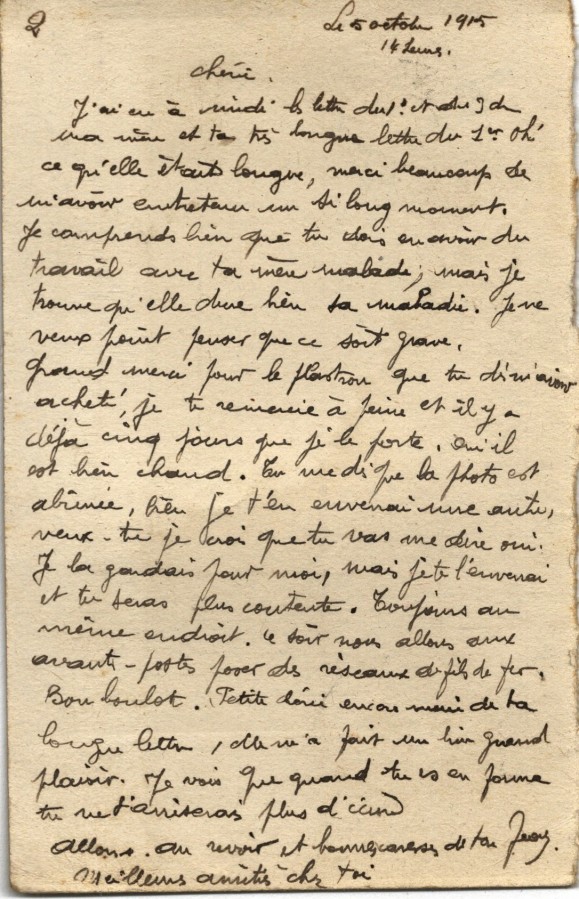 2
Le 5 octobre 1915
14 heures.
Chérie.
J'ai eu à midi la lettre du 1er et du 3 de
ma mère et ta très longue lettre du 1er Oh!
ce qu'elle était longue, merci beaucoup de
m'avoir entretenu un si long moment.
Je comprends bien que tu dois en avoir du
travail avec ta mère malade; mais je
trouve qu'elle dure bien sa maladie. Je ne
veux point penser que ce soit grave.
Grand merci pour le plastron que tu
acheté, je te remercie à peine et il y a
déjà cinq jours que je le porte. Oui il
est bien chaud. Tu me dis que la photo est
abîmée, bien je t'en enverrai une autre,
veux-tu je crois que tu vas me dire oui.
Je la gardais pour moi, mais je te l'enverrai
et tu seras plus contente. Toujours au
même endroit. Ce soir nous allons aux
avant-postes poser des réseaux de fils de fer.
Bon boulot. Petite encore merci de ta
longue lettre, elle m'a fait un bien grand
plaisir. Je vois que quand tu es en forme
tu ne t' plus d'écrire
allons. au revoir et bonnes caresses de ton Jean.
Meilleures amitiés chez toi